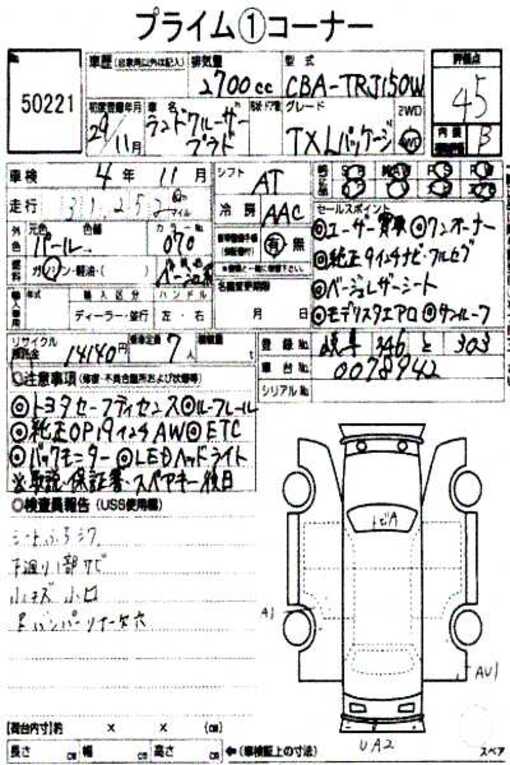 プライム①コーナー
No.
50221
車歴 (自家用以外は記入)
排気量
2700cc
型式
CBA-TRJ150W
評価点
4.5
内装
B
初度登録年月
29年11月
車名
ランドクルーザー
プラド
形状・ドア数
グレード
TX Lパッケージ
2WD
4WD
車検
4年11月
シフト
AT
走行
31,252
km
マイル
冷房
AAC
外装色
元色
パール
色替
カラーNo.
070
有・無
燃料
ガソリン・軽油・( )
ベージュ系
輸入車用
年式
輸入区分
ディーラー・並行
ハンドル
左・右
名義変更期限
月 日
セールスポイント
◎ユーザー買取◎ワンオーナー
◎純正9インチナビ・フルセグ
◎ベージュレザーシート
◎モデリスタエアロ◎サンルーフ
リサイクル預託金
14140円
乗車定員
7人
積載量
t
登録No.
岐阜 346 と 303
車台No.
0078942
シリアルNo.
◎注意事項 (修復・不具合箇所および状態等)
◎トヨタセーフティセンス◎ルーフレール
◎純正OP19インチAW◎ETC
◎バックモニター◎LEDヘッドライト
※取説・保証書・スペアキー後日
◎検査員報告 (USS使用欄)
シートよごれシワ
下廻り1部サビ
小キズ 小凹
トビA
A1
AU1
UA2
【荷台内寸】約 × × (cm)
長さ cm 幅 cm 高さ cm
←(車検証上の寸法)
スペア